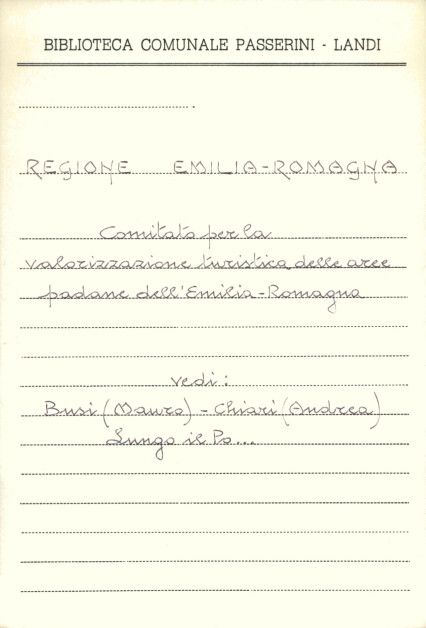 BIBLIOTECA COMUNALE PASSERINI - LANDI
REGIONE EMILIA-ROMAGNA
Comitato per la
valorizzazione turistica delle aree
padane dell'Emilia-Romagna
vedi:
Busi (Mauro) - Chiari (Andrea)
Lungo il Po...